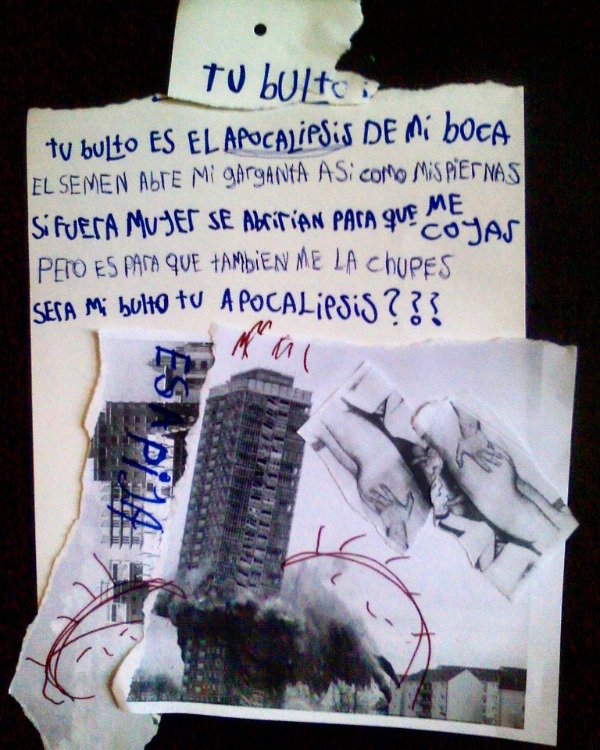 TU bULTO:
TU bULTO ES EL APOCALIPSIS DE Mi bOCA
EL SEMEN AbrE Mi gArgANTA ASi como MiS PiErNAS
Si FUErA MUjEr SE AbririAN PArA QUE ME COjAS
PErO ES PArA QUE TAMbiEN ME LA CHUPES
SErA Mi bulto TU APOCALiPSiS???
ESA PijA